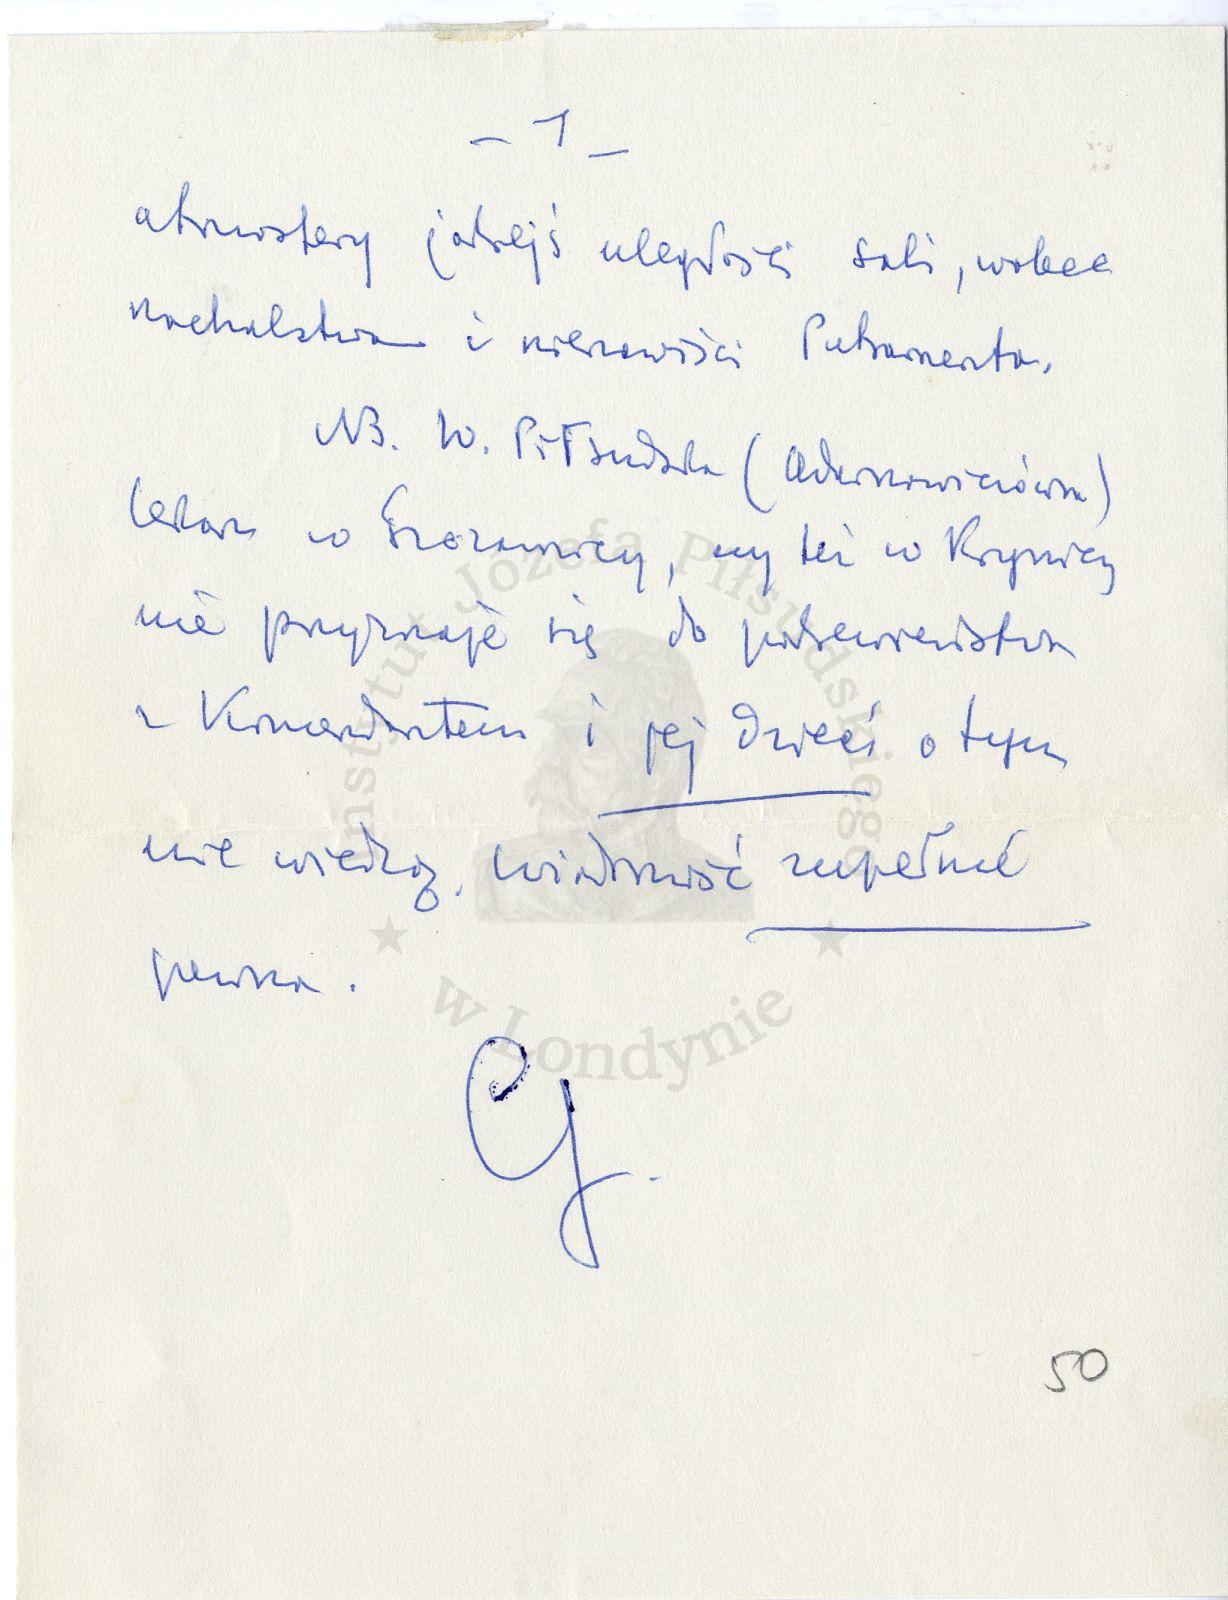 – 1 –
atmosfery jakiejś uległości sali, wobec
nachalstwa i nienawiści Putramenta.
NB. W. Piłsudska (Adamowiczówna)
lekarz w Szczawnicy, czy też w Krynicy
nie przyznaje się do pokrewieństwa
z Komendantem i jej dzieci o tym
nie wiedzą. Wiadomość zupełnie
pewna.
50
Instytut Józefa Piłsudskiego
w Londynie